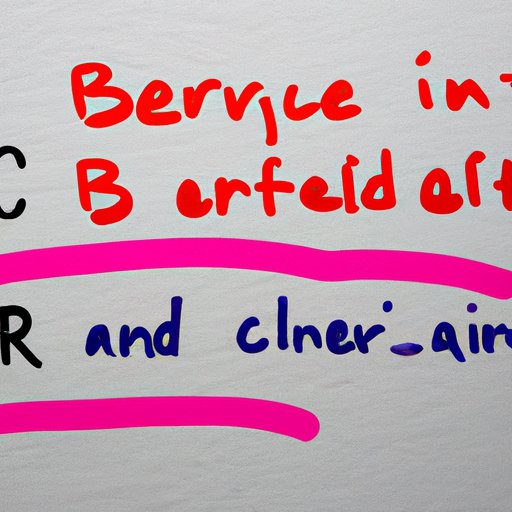 Bervyce in
C B arfeld alt
R and clner-air